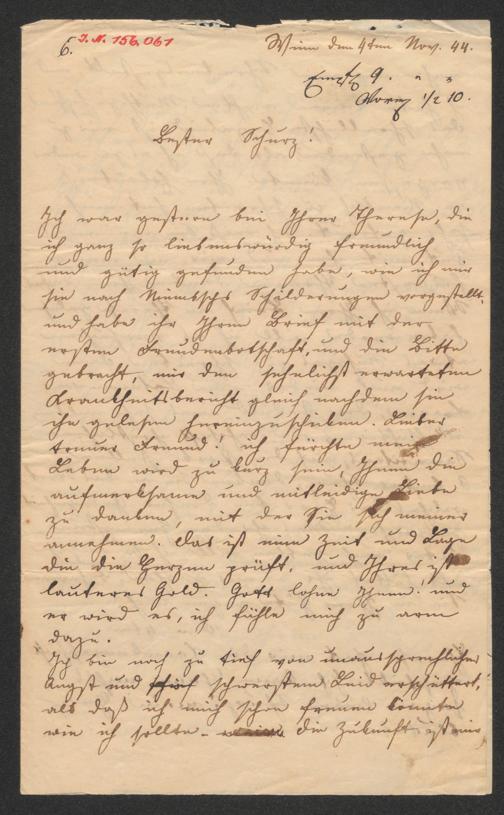 6.
I. N. 156.061
Wien den 4ten Nov. 44.
9. " "
1/2 10.
Bester Schurz!
Ich war gestern bei Ihrer Therese, die
ich ganz so liebenswürdig freundlich
und gütig gefunden habe, wie ich mir
sie nach Niembschs Schilderungen vorgestellt,
und habe ihr Ihren Brief mit der
ersten Freudenbotschaft, und die Bitte
gebracht, mir den sehnlichst erwarteten
Krankheitsbericht gleich nachdem sie
ihn gelesen hereinzuschicken. Lieber
treuer Freund! ich fürchte mein
Leben wird zu kurz sein, Ihnen die
aufmerksame und mitleidige Liebe
zu danken, mit der Sie sich meiner
annehmen. Das ist eine Zeit und Lage
die die Herzen prüft, und Ihres ist
lauteres Gold. Gott lohne Ihnen. und
er wird es, ich fühle mich zu arm
dazu.
Ich bin noch zu tief von unaussprechlicher
Angst und schwerstem Leid erschüttert,
als daß ich mich schon freuen könnte
wie ich sollte - die Zukunft ist mir